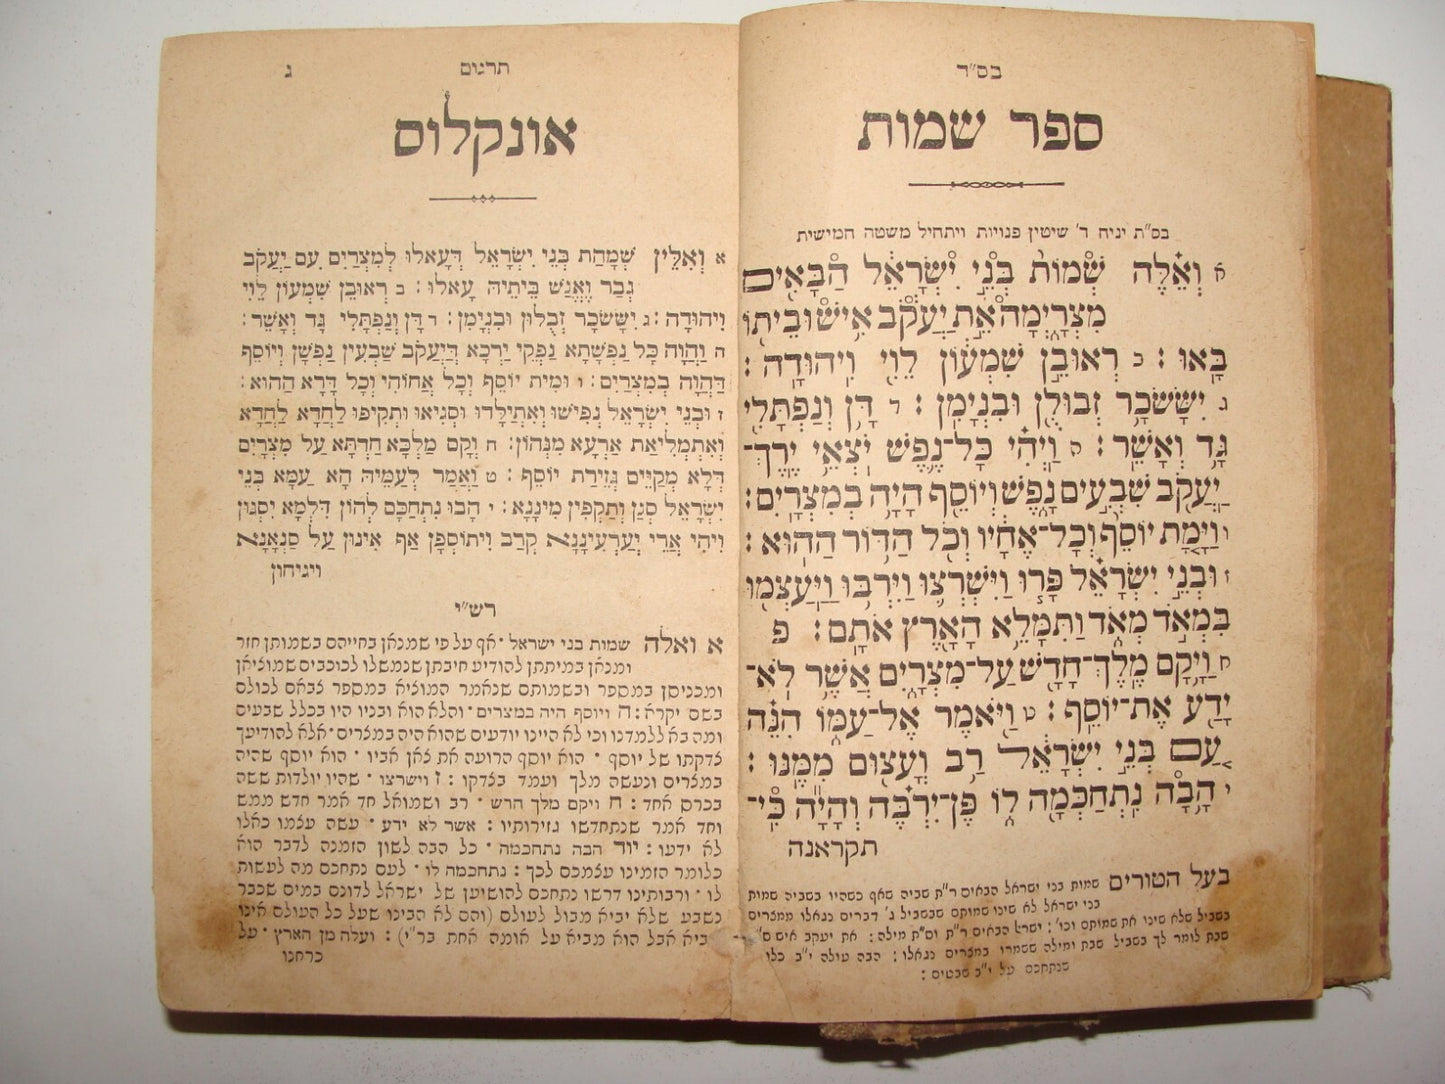 בס"ד
ספר שמות
בס"ת יניח ד' שיטין פנויות ויתחיל משטה חמישית
א וְאֵלֶּה שְׁמוֹת בְּנֵי יִשְׂרָאֵל הַבָּאִים
מִצְרָיְמָה אֵת יַעֲקֹב אִישׁ וּבֵיתוֹ
בָּאוּ: ב רְאוּבֵן שִׁמְעוֹן לֵוִי וִיהוּדָה:
ג יִשָּׂשכָר זְבוּלֻן וּבִנְיָמִן: ד דָּן וְנַפְתָּלִי
גָּד וְאָשֵׁר: ה וַיְהִי כָּל־נֶפֶשׁ יֹצְאֵי יֶרֶךְ־
יַעֲקֹב שִׁבְעִים נָפֶשׁ וְיוֹסֵף הָיָה בְמִצְרָיִם:
ו וַיָּמָת יוֹסֵף וְכָל־אֶחָיו וְכֹל הַדּוֹר הַהוּא:
ז וּבְנֵי יִשְׂרָאֵל פָּרוּ וַיִּשְׁרְצוּ וַיִּרְבּוּ וַיַּעַצְמוּ
בִּמְאֹד מְאֹד וַתִּמָּלֵא הָאָרֶץ אֹתָם: פ
ח וַיָּקָם מֶלֶךְ־חָדָשׁ עַל־מִצְרָיִם אֲשֶׁר לֹא־
יָדַע אֶת־יוֹסֵף: ט וַיֹּאמֶר אֶל־עַמּוֹ הִנֵּה
עַם בְּנֵי יִשְׂרָאֵל רַב וְעָצוּם מִמֶּנּוּ:
י הָבָה נִתְחַכְּמָה לוֹ פֶּן־יִרְבֶּה וְהָיָה כִּי־
תקראנה
בעל הטורים שמות בני ישראל הבאים ר"ת שביה שאף כשהיו בשביה שמות
בני ישראל לא שינו שמותם שבשביל ג' דברים נגאלו ממצרים
בשביל שלא שינו את שמותם וכו': ישראל הבאים ר"ת וס"ת מילה: את יעקב איש ס"ת
שבת לומר לך בשביל שבת ומילה ששמרו במצרים נגאלו: הבה עולה י"ב כלו
שנתחכם על י"ב שבטים:
תרגום ג
אונקלוס
א וְאִלֵּין שְׁמָהַת בְּנֵי יִשְׂרָאֵל דְּעָאלוּ לְמִצְרַיִם עִם יַעֲקֹב
גְּבַר וֶאֱנַשׁ בֵּיתֵיהּ עָאלוּ: ב רְאוּבֵן שִׁמְעוֹן לֵוִי
וִיהוּדָה: ג יִשָּׂשׂכָר זְבֻלוּן וּבִנְיָמִן: ד דָּן וְנַפְתָּלִי גָּד וְאָשֵׁר:
ה וַהֲוָה כָּל נַפְשָׁתָא נַפְקֵי יַרְכָּא דְּיַעֲקֹב שַׁבְעִין נַפְשָׁן וְיוֹסֵף
דַּהֲוָה בְמִצְרָיִם: ו וּמִית יוֹסֵף וְכָל אֲחוֹהִי וְכָל דָּרָא הַהוּא:
ז וּבְנֵי יִשְׂרָאֵל נְפִישׁוּ וְאִתְיַלָּדוּ וּסְגִיאוּ וּתְקִיפוּ לַחֲדָא לַחֲדָא
וְאִתְמְלִיאַת אַרְעָא מִנְּהוֹן: ח וְקָם מַלְכָּא חַדְתָּא עַל מִצְרָיִם
דְּלָא מְקַיֵּים גְּזֵירַת יוֹסֵף: ט וַאֲמַר לְעַמֵּיהּ הָא עַמָּא בְּנֵי
יִשְׂרָאֵל סְגַן וְתַקְפִין מִינָנָא: י הָבוּ נִתְחַכָּם לְהוֹן דִּלְמָא יִסְגּוּן
וִיהֵי אֲרֵי יְעַרְעִינָנָא קְרַב וְיִתוֹסְפָן אַף אִינוּן עַל סַנְאָנָא
ויגיחון
רש"י
א ואלה שמות בני ישראל · אף על פי שמנאן בחייהם בשמותן חזר
ומנאן במיתתן להודיע חיבתן שנמשלו לכוכבים שמוציאן
ומכניסן במספר ובשמותם שנאמר המוציא במספר צבאם לכולם
בשם יקרא: ה ויוסף היה במצרים · והלא הוא ובניו היו בכלל שבעים
ומה בא ללמדנו וכי לא היינו יודעים שהוא היה במצרים · אלא להודיעך
צדקתו של יוסף · הוא יוסף הרועה את צאן אביו · הוא יוסף שהיה
במצרים ונעשה מלך ועמד בצדקו: ז וישרצו · שהיו יולדות ששה
בכרס אחד: ח ויקם מלך חדש · רב ושמואל חד אמר חדש ממש
וחד אמר שנתחדשו גזירותיו: אשר לא ידע · עשה עצמו כאלו
לא ידעו: יוד הבה נתחכמה · כל הבה לשון הזמנה לדבר הוא
כלומר הזמינו עצמכם לכך: נתחכמה לו · לעם נתחכם מה לעשות
לו · ורבותינו דרשו נתחכם להושיען של ישראל לדונם במים שכבר
נשבע שלא יביא מבול לעולם (והם לא הבינו שעל כל העולם אינו
ביא אבל הוא מביא על אומה אחת בר"י): ועלה מן הארץ · על
כרחנו